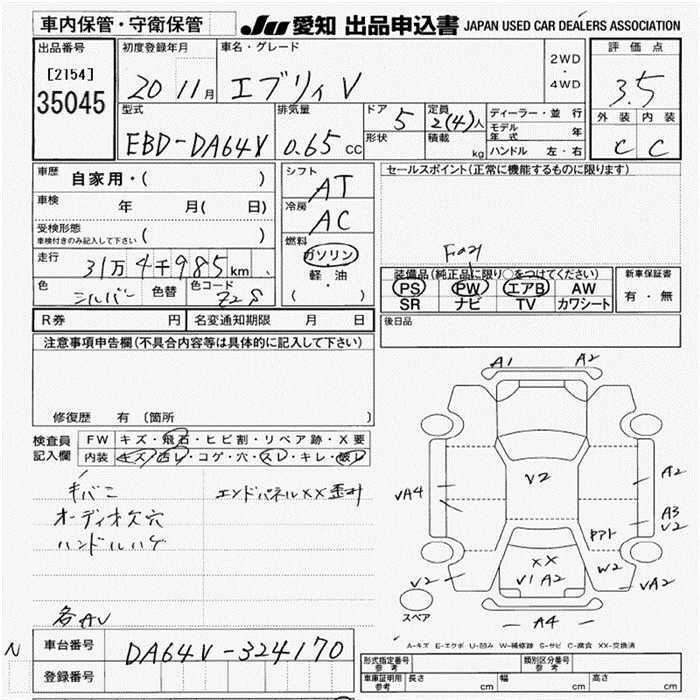 車内保管・守衛保管
JU 愛知 出品申込書 JAPAN USED CAR DEALERS ASSOCIATION
出品番号
[2154]
35045
初度登録年月
20 11月
車名・グレード
エブリィ V
2WD
・
4WD
評価点
3.5
外装 内装
C C
型式
EBD-DA64V
排気量
0.65 CC
ドア 5
形状
定員 2(4)人
積載 kg
ディーラー・並行
モデル年式 年
ハンドル 左・右
車歴 自家用・( )
車検 年 月( 日)
受検形態
車検付きのみ記入して下さい ( )
走行 31万4千985km
色 シルバー 色替 色コード Z2S
シフト AT
冷房 AC
燃料
ガソリン
軽・油
( )
セールスポイント(正常に機能するものに限ります)
装備品(純正品に限り○をつけてください)
PS PW エアB AW
SR ナビ TV カワシート
新車保証書
有・無
R券 円 名変通知期限 月 日
後日品
注意事項申告欄(不具合内容等は具体的に記入して下さい)
修復歴 有 〔箇所 〕
検査員
記入欄
FW キズ・飛石・ヒビ割・リペア跡・X要
内装 キズ・汚レ・コゲ・穴・スレ・キレ・破レ
キバミ
オーディオ欠穴
ハンドルハゲ
各AU
エンドパネルXX歪ミ
A1 A2
V2
VA4
A2
A3
V2
W2
XX
V1 A2
V2
VA2
A4
スペア
A-キズ E-エクボ U-凹み W-補修跡 S-サビ C-腐食 XX-交換済
N
車台番号 DA64V-324170
登録番号
形式指定番号
参考
類別区分番号
参考
車庫証明用
参考
長さ cm 幅 cm 高さ cm